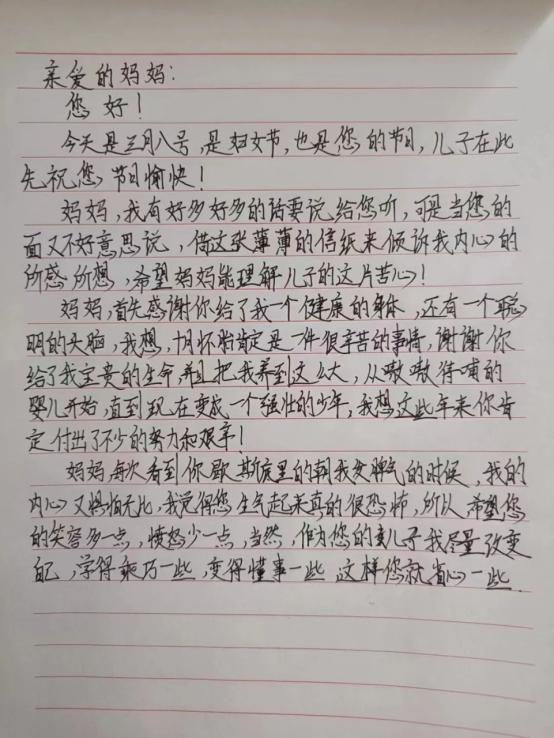 亲爱的妈妈:
您好!
今天是三月八号,是妇女节,也是您的节日,儿子在此
先祝您节日愉快!
妈妈,我有好多好多的话要说给您听,可是当您的
面又不好意思说,借这张薄薄的信纸来倾诉我内心的
所感所想,希望妈妈能理解儿子的这片苦心!
妈妈,首先感谢你给了我一个健康的身体,还有一个聪
明的头脑,我想,十月怀胎肯定是一件很辛苦的事情,谢谢你
给了我宝贵的生命,并且把我养到这么大,从嗷嗷待哺的
婴儿开始,直到现在变成一个强壮的少年,我想这些年来你肯
定付出了不少的努力和艰辛!
妈妈,每次看到你歇斯底里的朝我发脾气的时候,我的
内心又惧怕无比,我觉得您生气起来真的很恐怖,所以希望您
的笑容多一点,愤怒少一点,当然,作为您的儿子我尽量改变
自己,学得乖巧一些,变得懂事一些 这样您就省心一些.